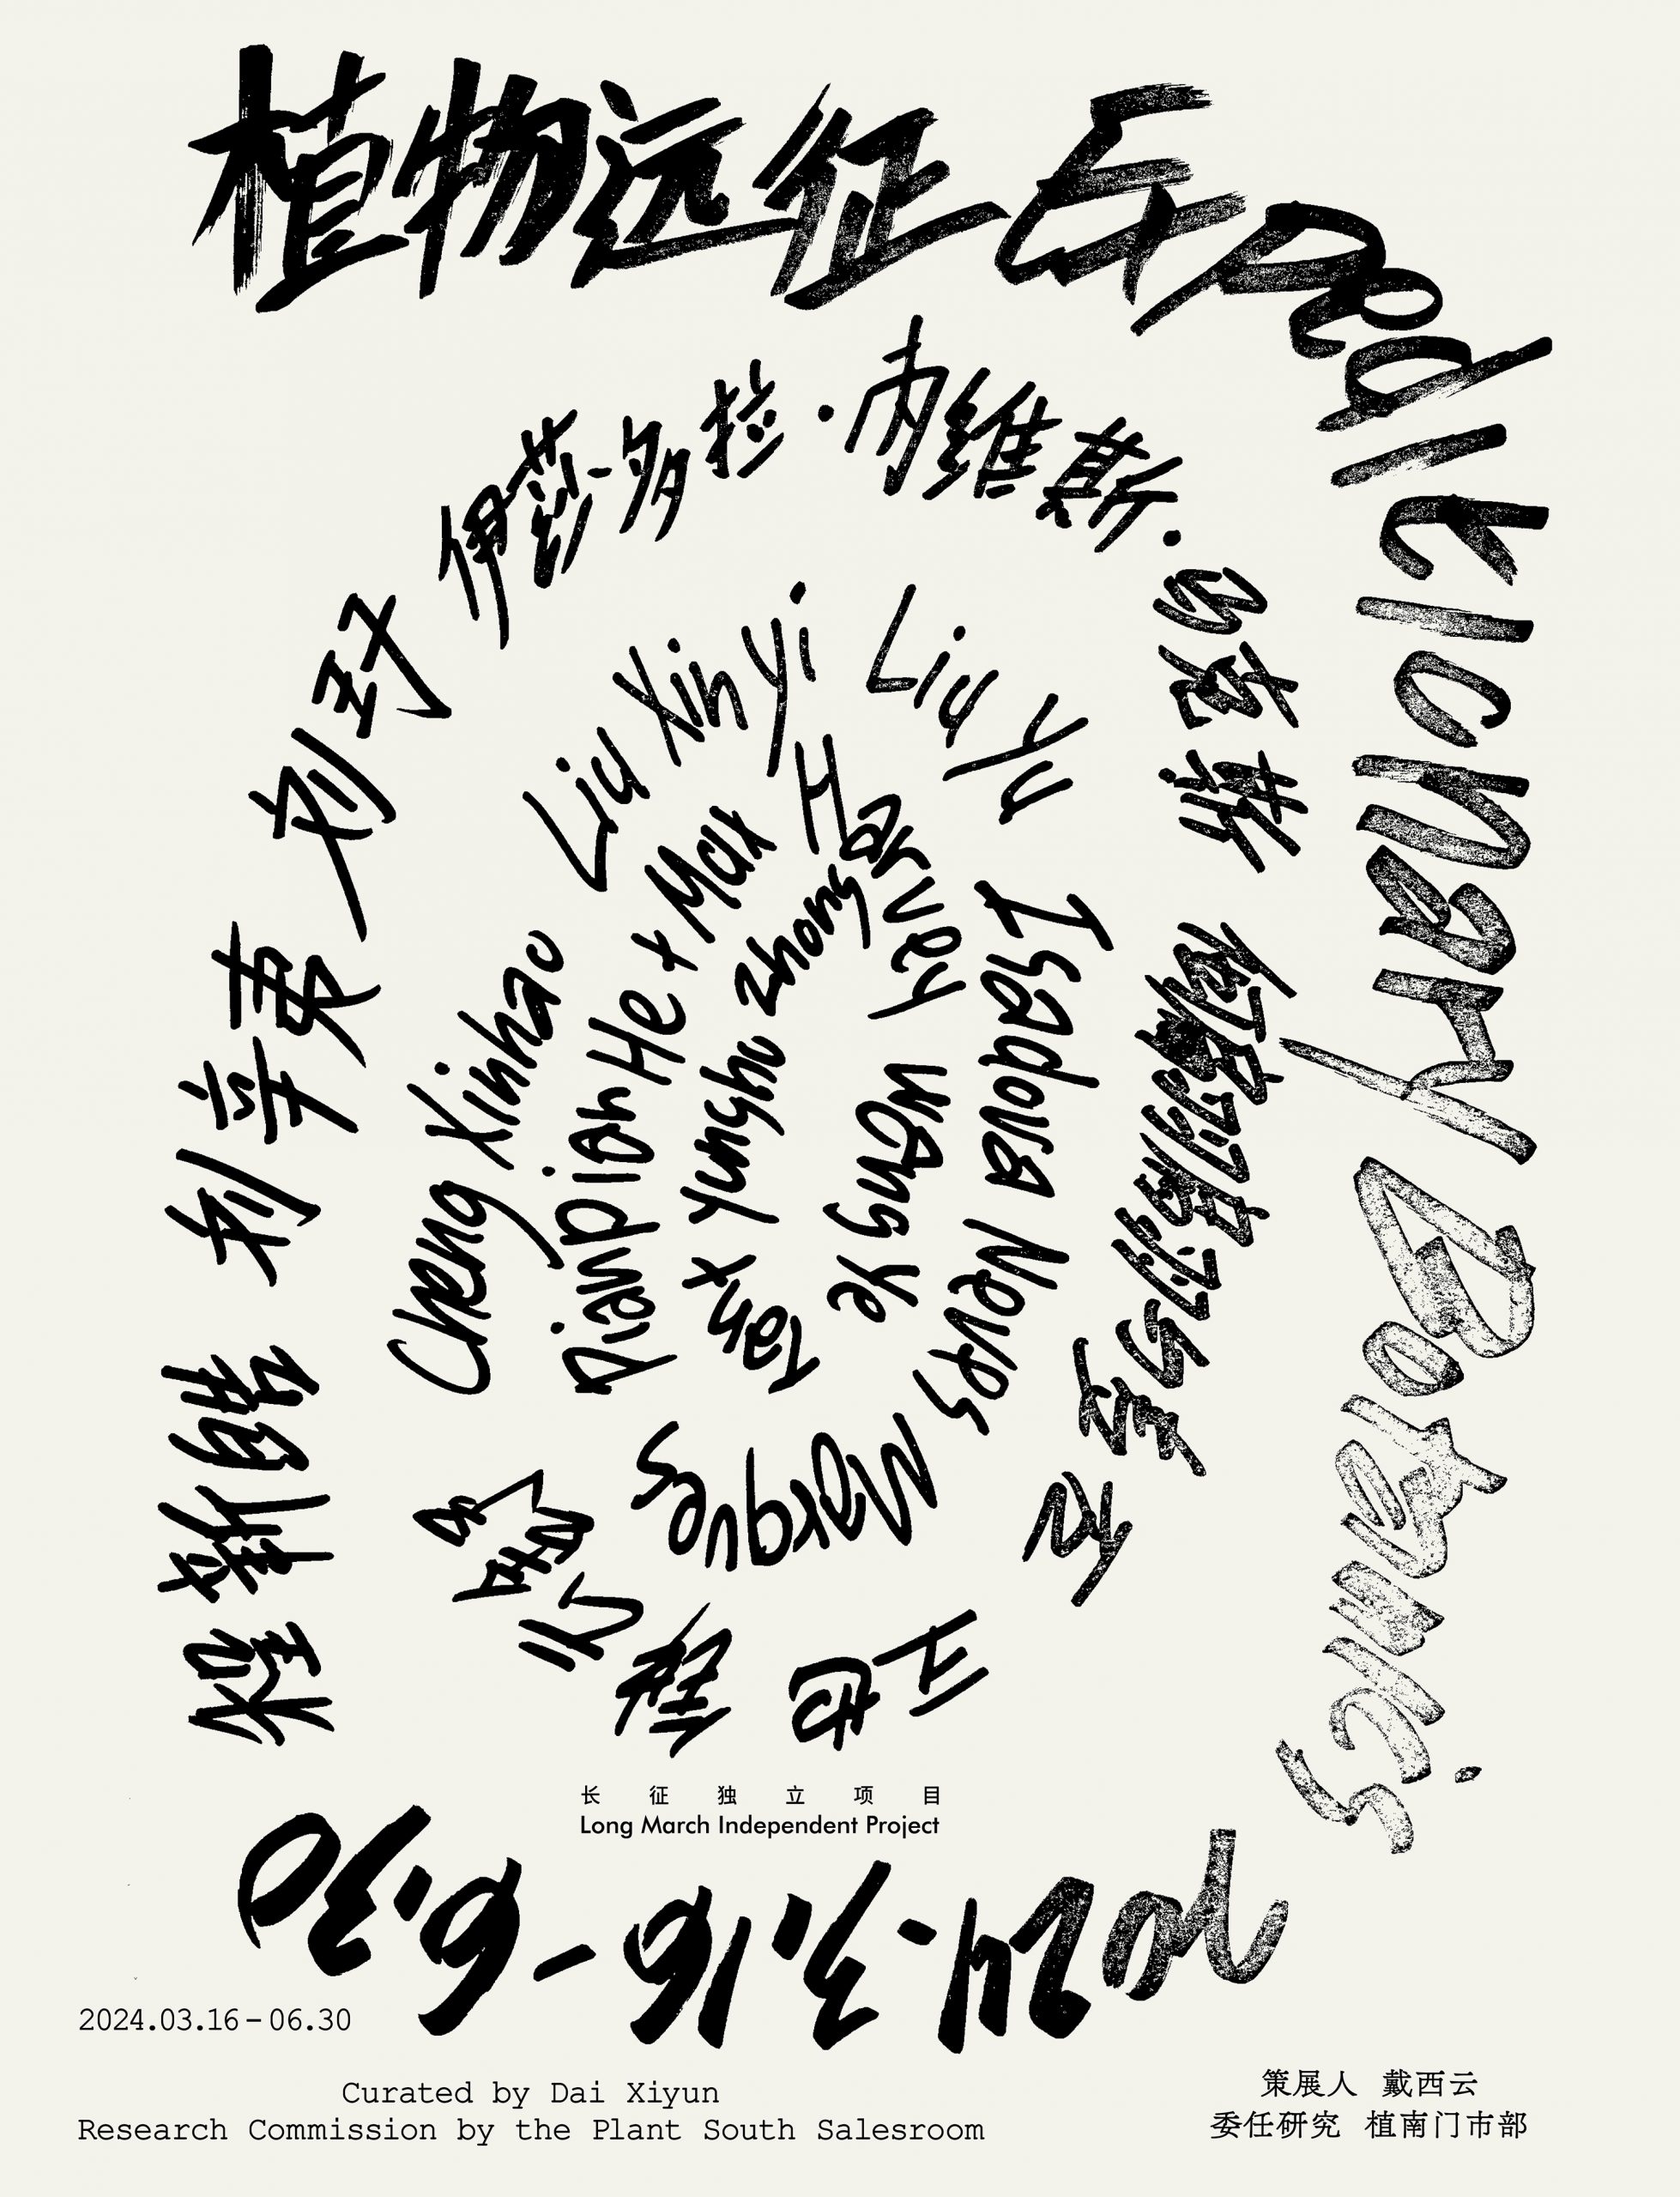 植物远征 Expeditionary Botanics
2024.3.16-6.30
程新皓
刘辛夷
刘玗
伊莎多拉·内维斯·马克斯
王也
Cheng Xinhao
Liu Xinyi
Liu Yu
Isadora Neves Marques
Max Harvey
Wang Ye
Zhong
长征独立项目
Long March Independent Project
2024.03.16-06.30
Curated by Dai Xiyun
Research Commission by the Plant South Salesroom
策展人 戴西云
委任研究 植南门市部